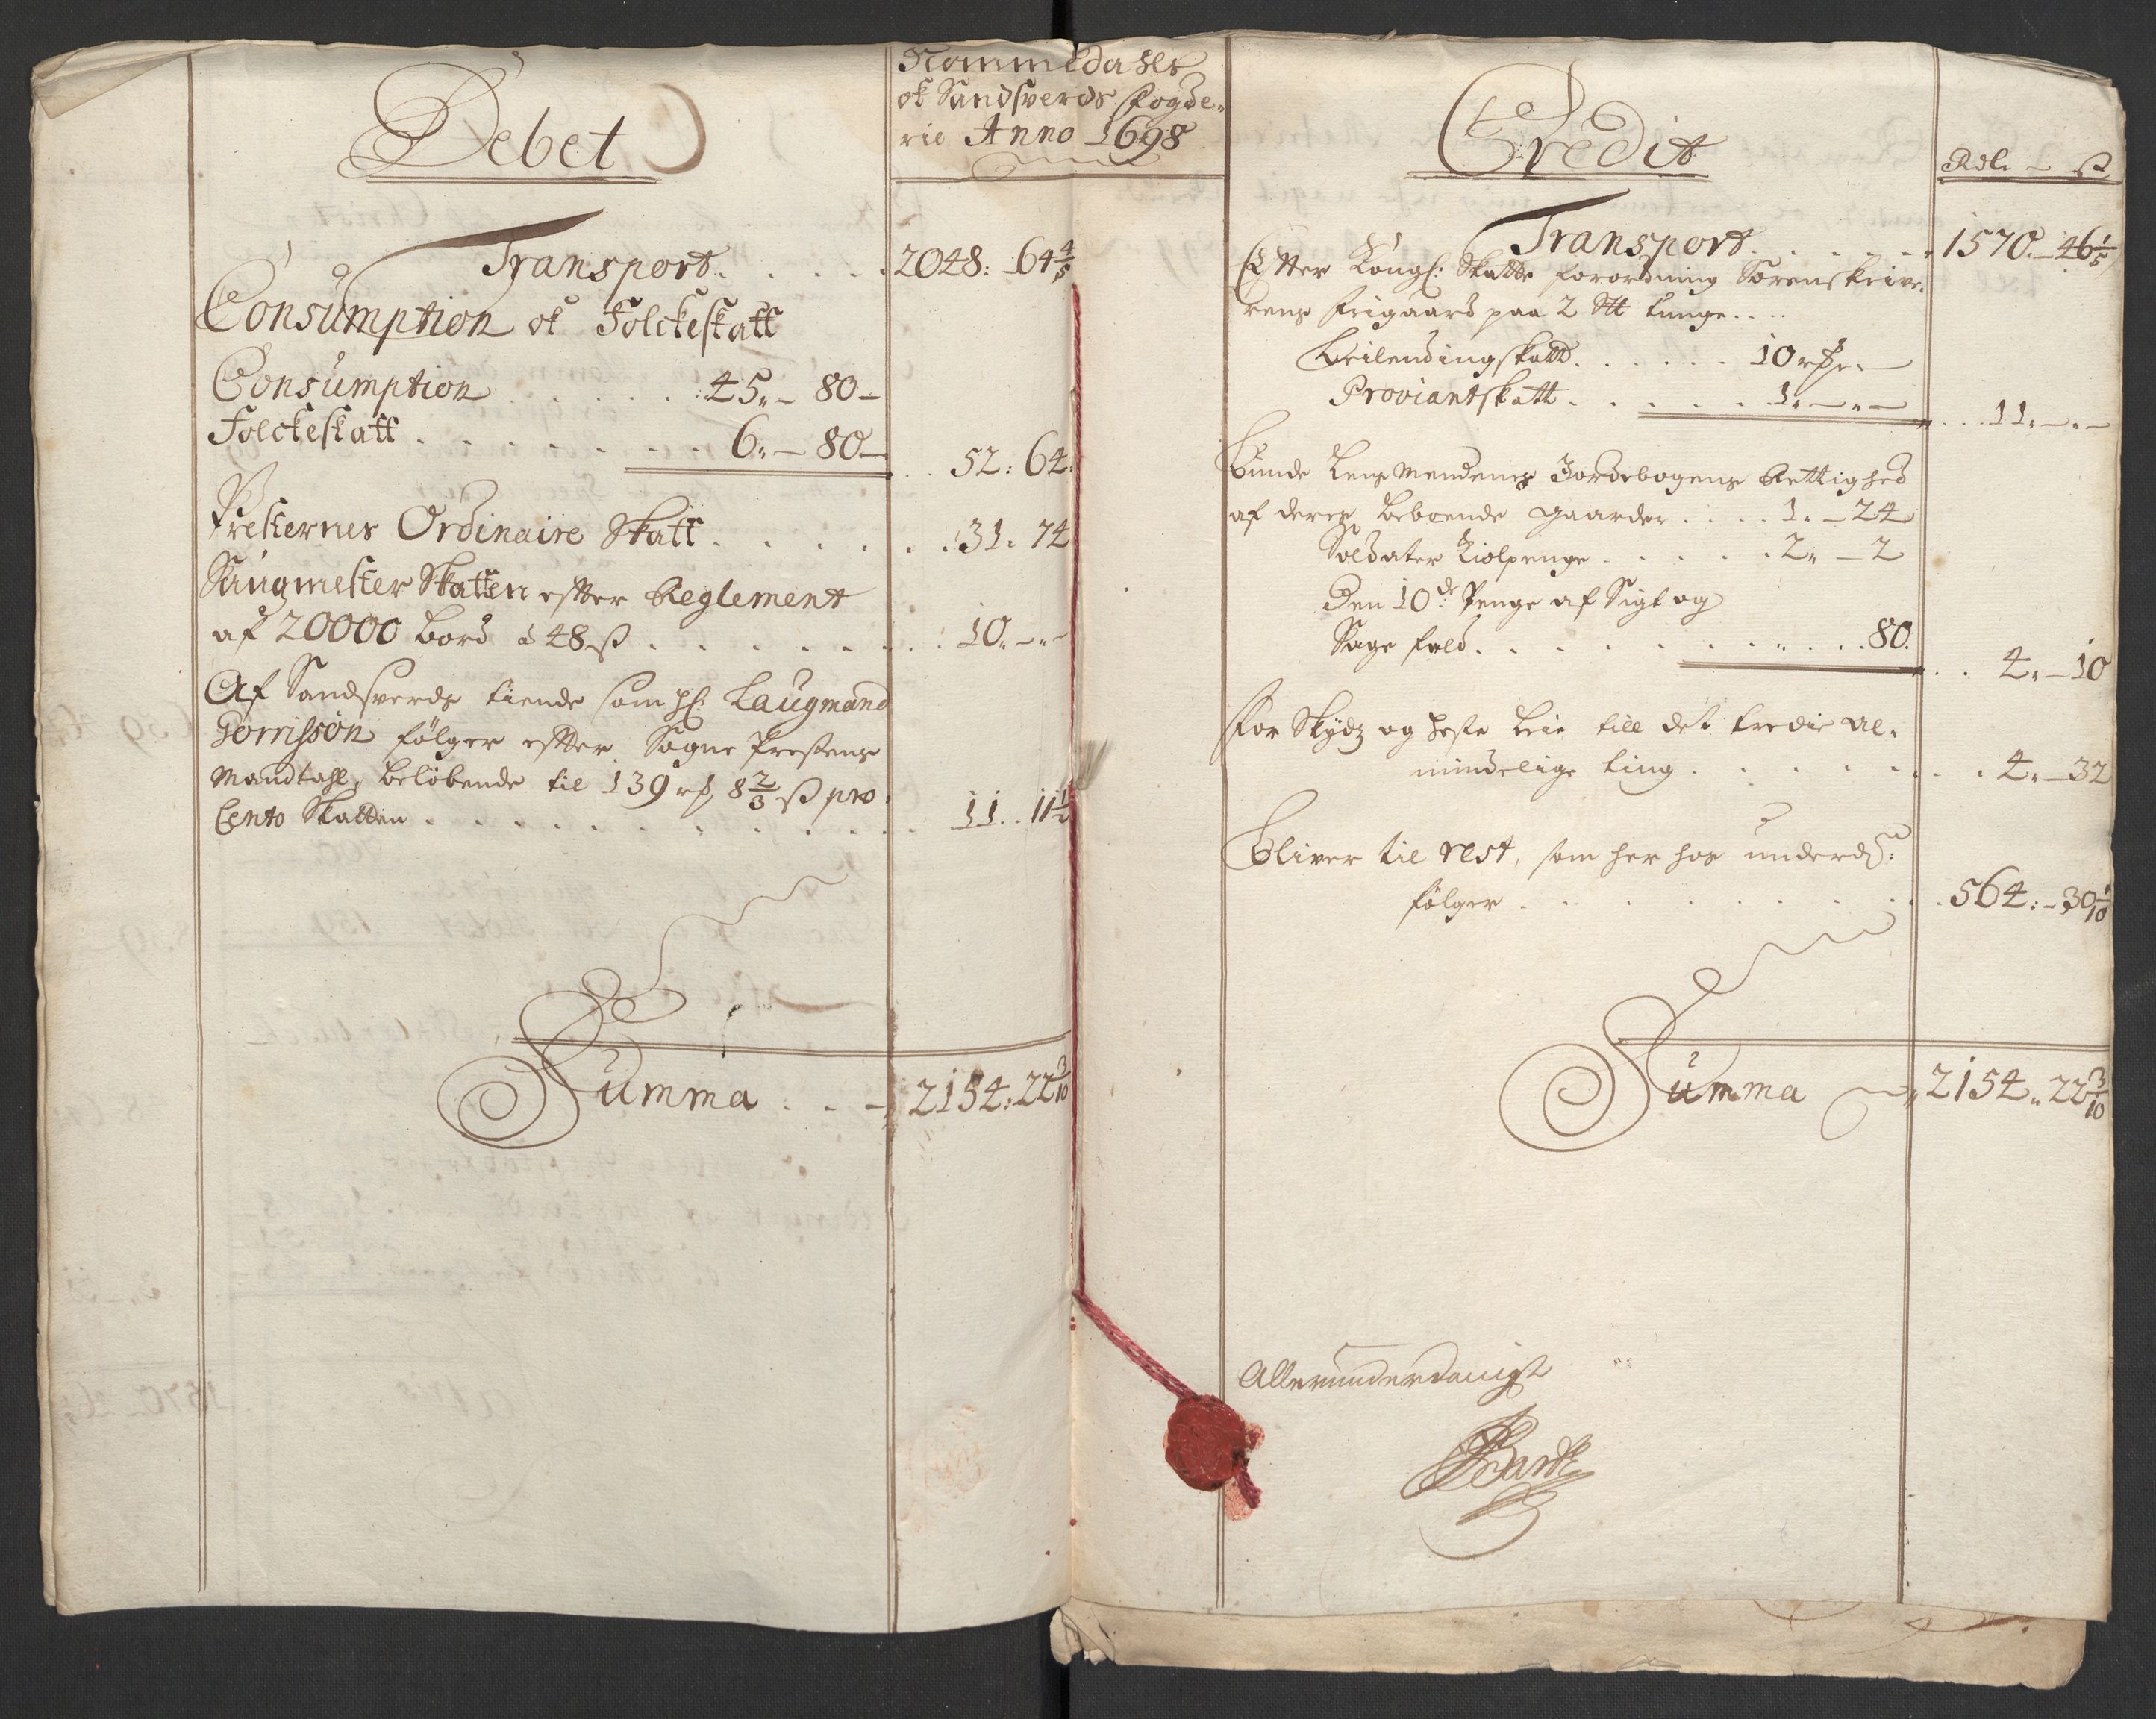 Nommedahls
ok Sandsverds Fogde-
rie Anno 1698
Debet
Transport. . . . . 2048: 64 4/5
Consumption ok Folckeskatt
Consumption . . . . . 45.- 80-
Folckeskatt . . . . . . . 6.- 80- . . 52: 64.
Presternes Ordinaire Skatt . . . . . . 31. 74
Saugmester Skatten effter Reglement
af 20000 bord à 48 ß . . . . . . . 10.-.-
Af Sandsverds tiende som Hr: Laugmand
Görrissön fölger effter Sogne Prestens
Mandtahl, belöbende til 139 rd 8 2/3 ß pro
Cento Skatten . . . . . . . . . . 11. 11 1/2
Summa . . - 2154: 22 3/10
Credit
Rdl. - ß
Transport . . . . . . 1570. - 46 1/5
Effter Kongl: Skatte forordning Sorenskrive-
rens frigaard paa 2 tunge . . . .
Leilendingskatt . . . . . . 10 rd.-
Proviantskatt . . . . . . 1.-.- . . . 11.-.-
Bunde Lens Mendenes Jordebogens Rettighed
af deres beboende gaarder . . . . 1.-24
Soldater Kiolpenge . . . . . 2.-2
Den 10de Penge af Sigt og
Sage fald . . . . . . . . . . . 80. . . 4.-10
For Skydz og heste leie till det tredie al-
mindelige ting . . . . . . . . 4.-32
Bliver til rest, som her hos underd:
fölger . . . . . . . . . . 564: -30 1/10
Summa 2154.. 22 3/10
Allerunderdanigst